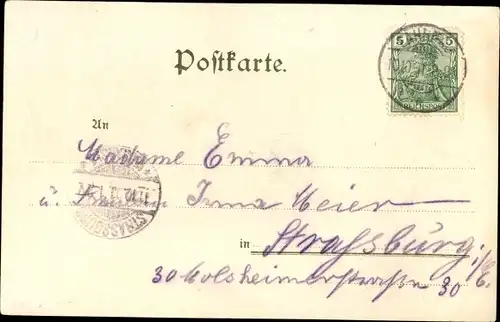 Postkarte.
5 5
REICHSPOST
An
Madame Emma
u. Fräulein Irma Meier
STRASSBURG
in Straßburg i/E.
30 Molsheimerstraße 30